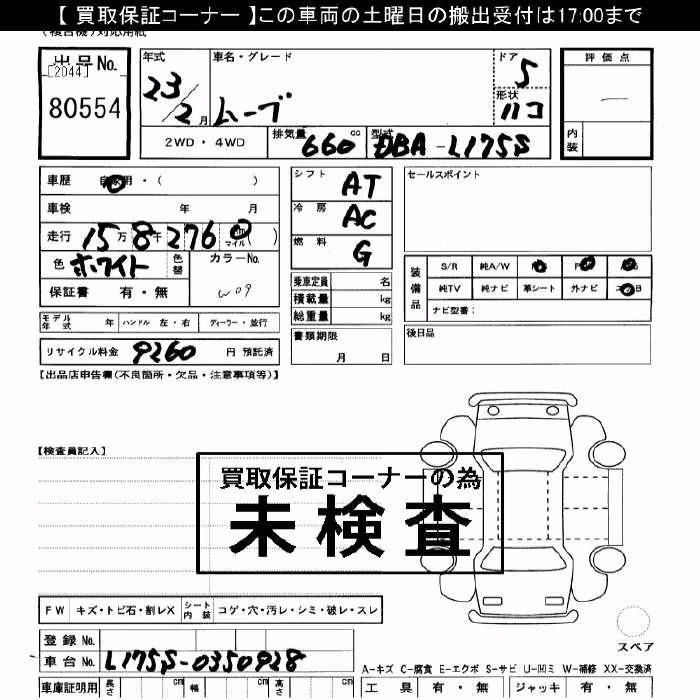 【 買取保証コーナー 】この車両の土曜日の搬出受付は17:00まで
出品No.
[2044]
80554
年式
23/2月
車名・グレード
ムーブ
ドア
5
形状
ハコ
評価点
内装
2WD・4WD
排気量
660cc
型式
DBA-L175S
車歴 自家用・( )
車検 年 月
走行 15万8千2760 マイル ( )
色 ホワイト
色替
カラーNo.
W09
保証書 有・無
シフト AT
冷房 AC
燃料 G
乗車定員 名
積載量 kg
総重量 kg
セールスポイント
装備品
S/R 純A/W
純TV 純ナビ 革シート 外ナビ
ナビ型番:
モデル年式 年 ハンドル 左・右 ディーラー・並行
書類期限
月 日
後日品
リサイクル料金 9260 円 預託済
【出品店申告欄(不良箇所・欠品・注意事項等)】
【検査員記入】
買取保証コーナーの為
未検査
FW キズ・トビ石・割レX シート内装 コゲ・穴・汚レ・シミ・破レ・スレ
スペア
登録 No.
車台 No. L175S-0350928
A-キズ C-腐食 E-エクボ S-サビ U-凹ミ W-補修 XX-交換済
車庫証明用 長さ cm 幅 cm 高さ cm
工具 有・無 ジャッキ 有・無